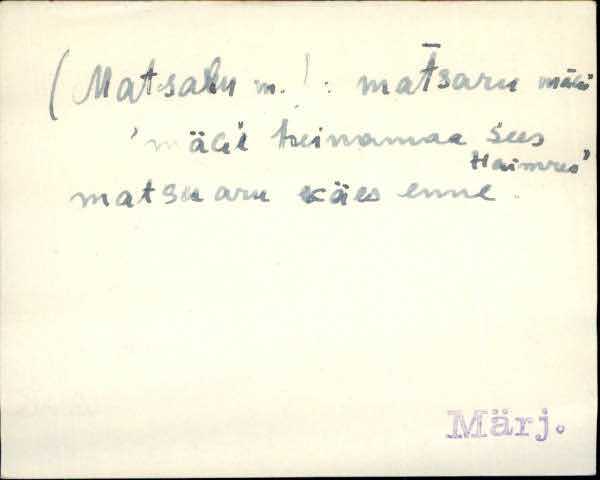 (Matsalu m.): mat̄saru mägi
'mägi heinamaa sees
Haimres"
matsu aru käes enne.
Märj.